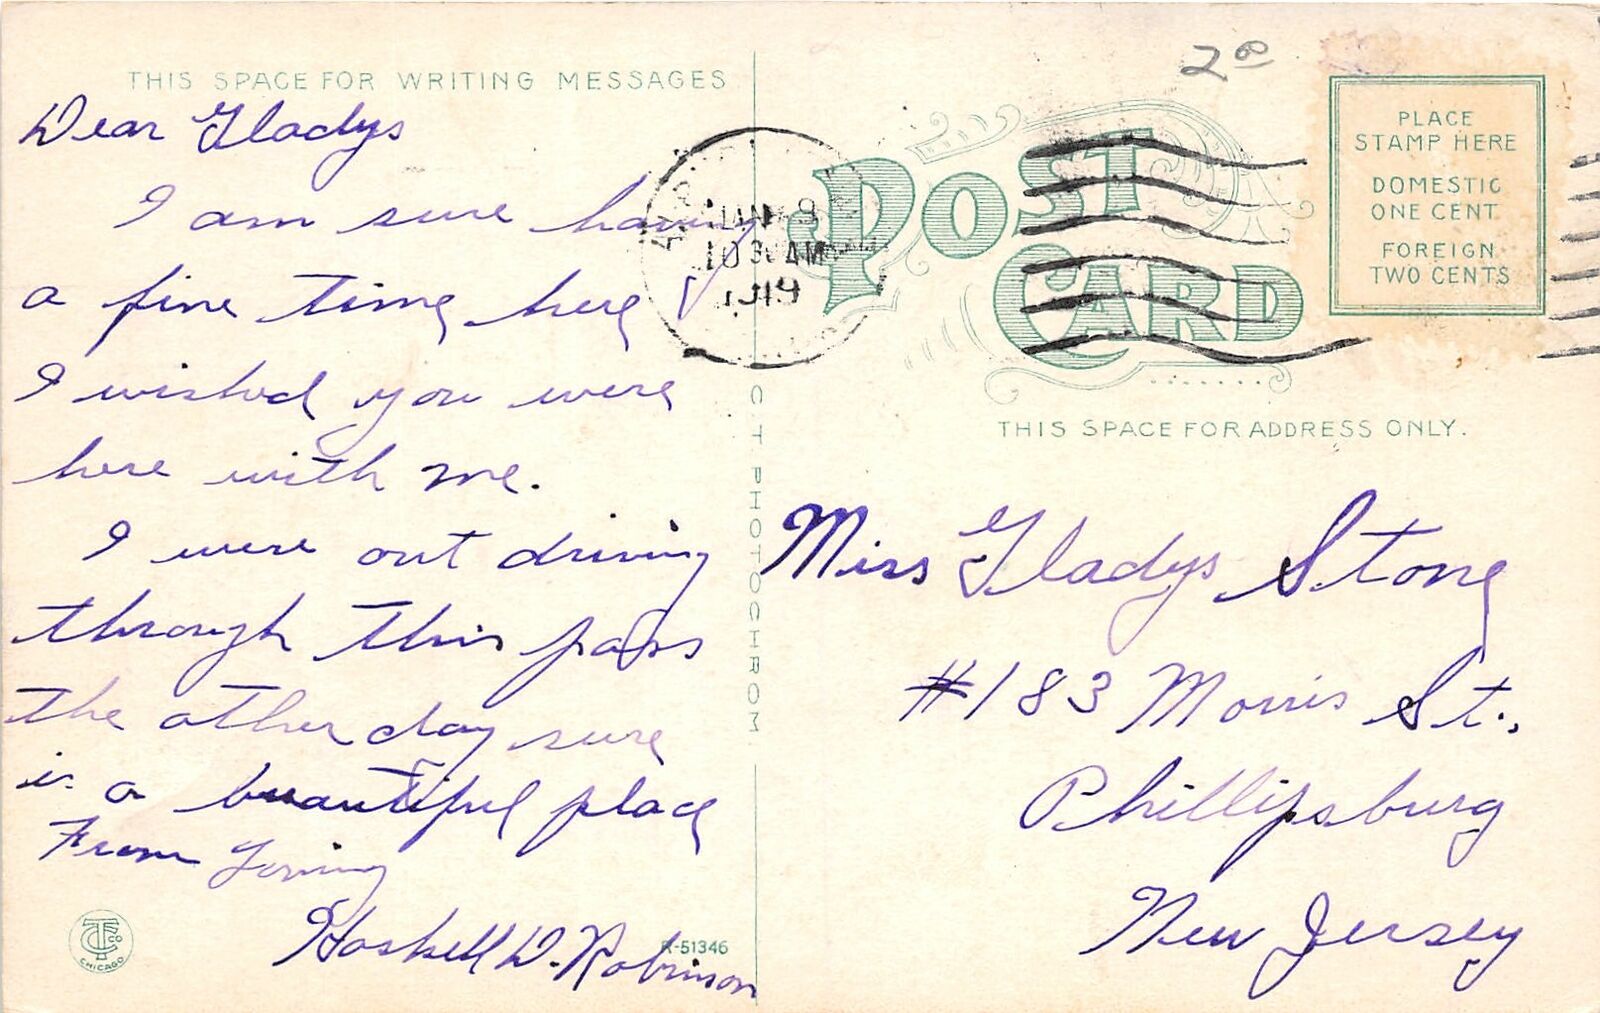 THIS SPACE FOR WRITING MESSAGES
Dear Gladys
I am sure having
a fine time here
I wished you were
here with me.
I were out driving
through this pass
the other day sure
is a beautiful place
From Loving
Haskell D. Robinson
C.T. PHOTOCHROM
R-51346
CTCo
CHICAGO
2 00
POST CARD
JAN 8
10 30 AM
PLACE
STAMP HERE
DOMESTIC
ONE CENT
FOREIGN
TWO CENTS
THIS SPACE FOR ADDRESS ONLY.
Miss Gladys Stone
#183 Morris St.,
Phillipsburg
New Jersey